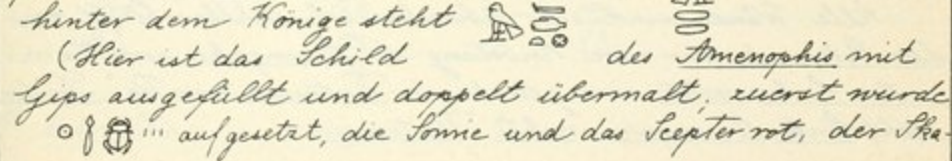 hinter dem Könige steht
(Hier ist das Schild des Amenophis mit
Gips ausgefüllt und doppelt übermalt, zuerst wurde
aufgesetzt, die Sonne und das Scepter rot, der Ska-